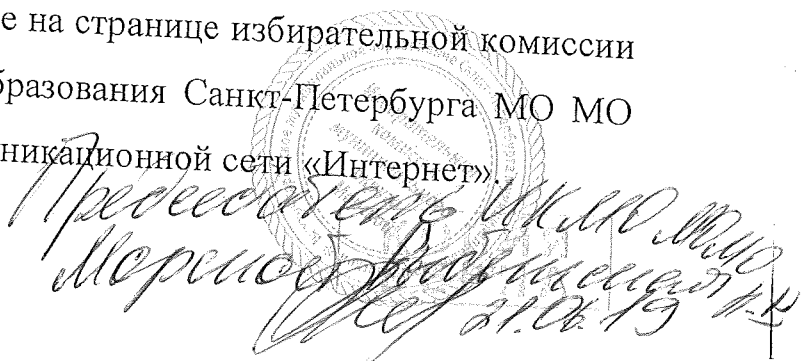 е на странице избирательной комиссии
бразования Санкт-Петербурга МО МО
никационной сети «Интернет».
Председатель ИКМО МОМО
Морской
21.06.19